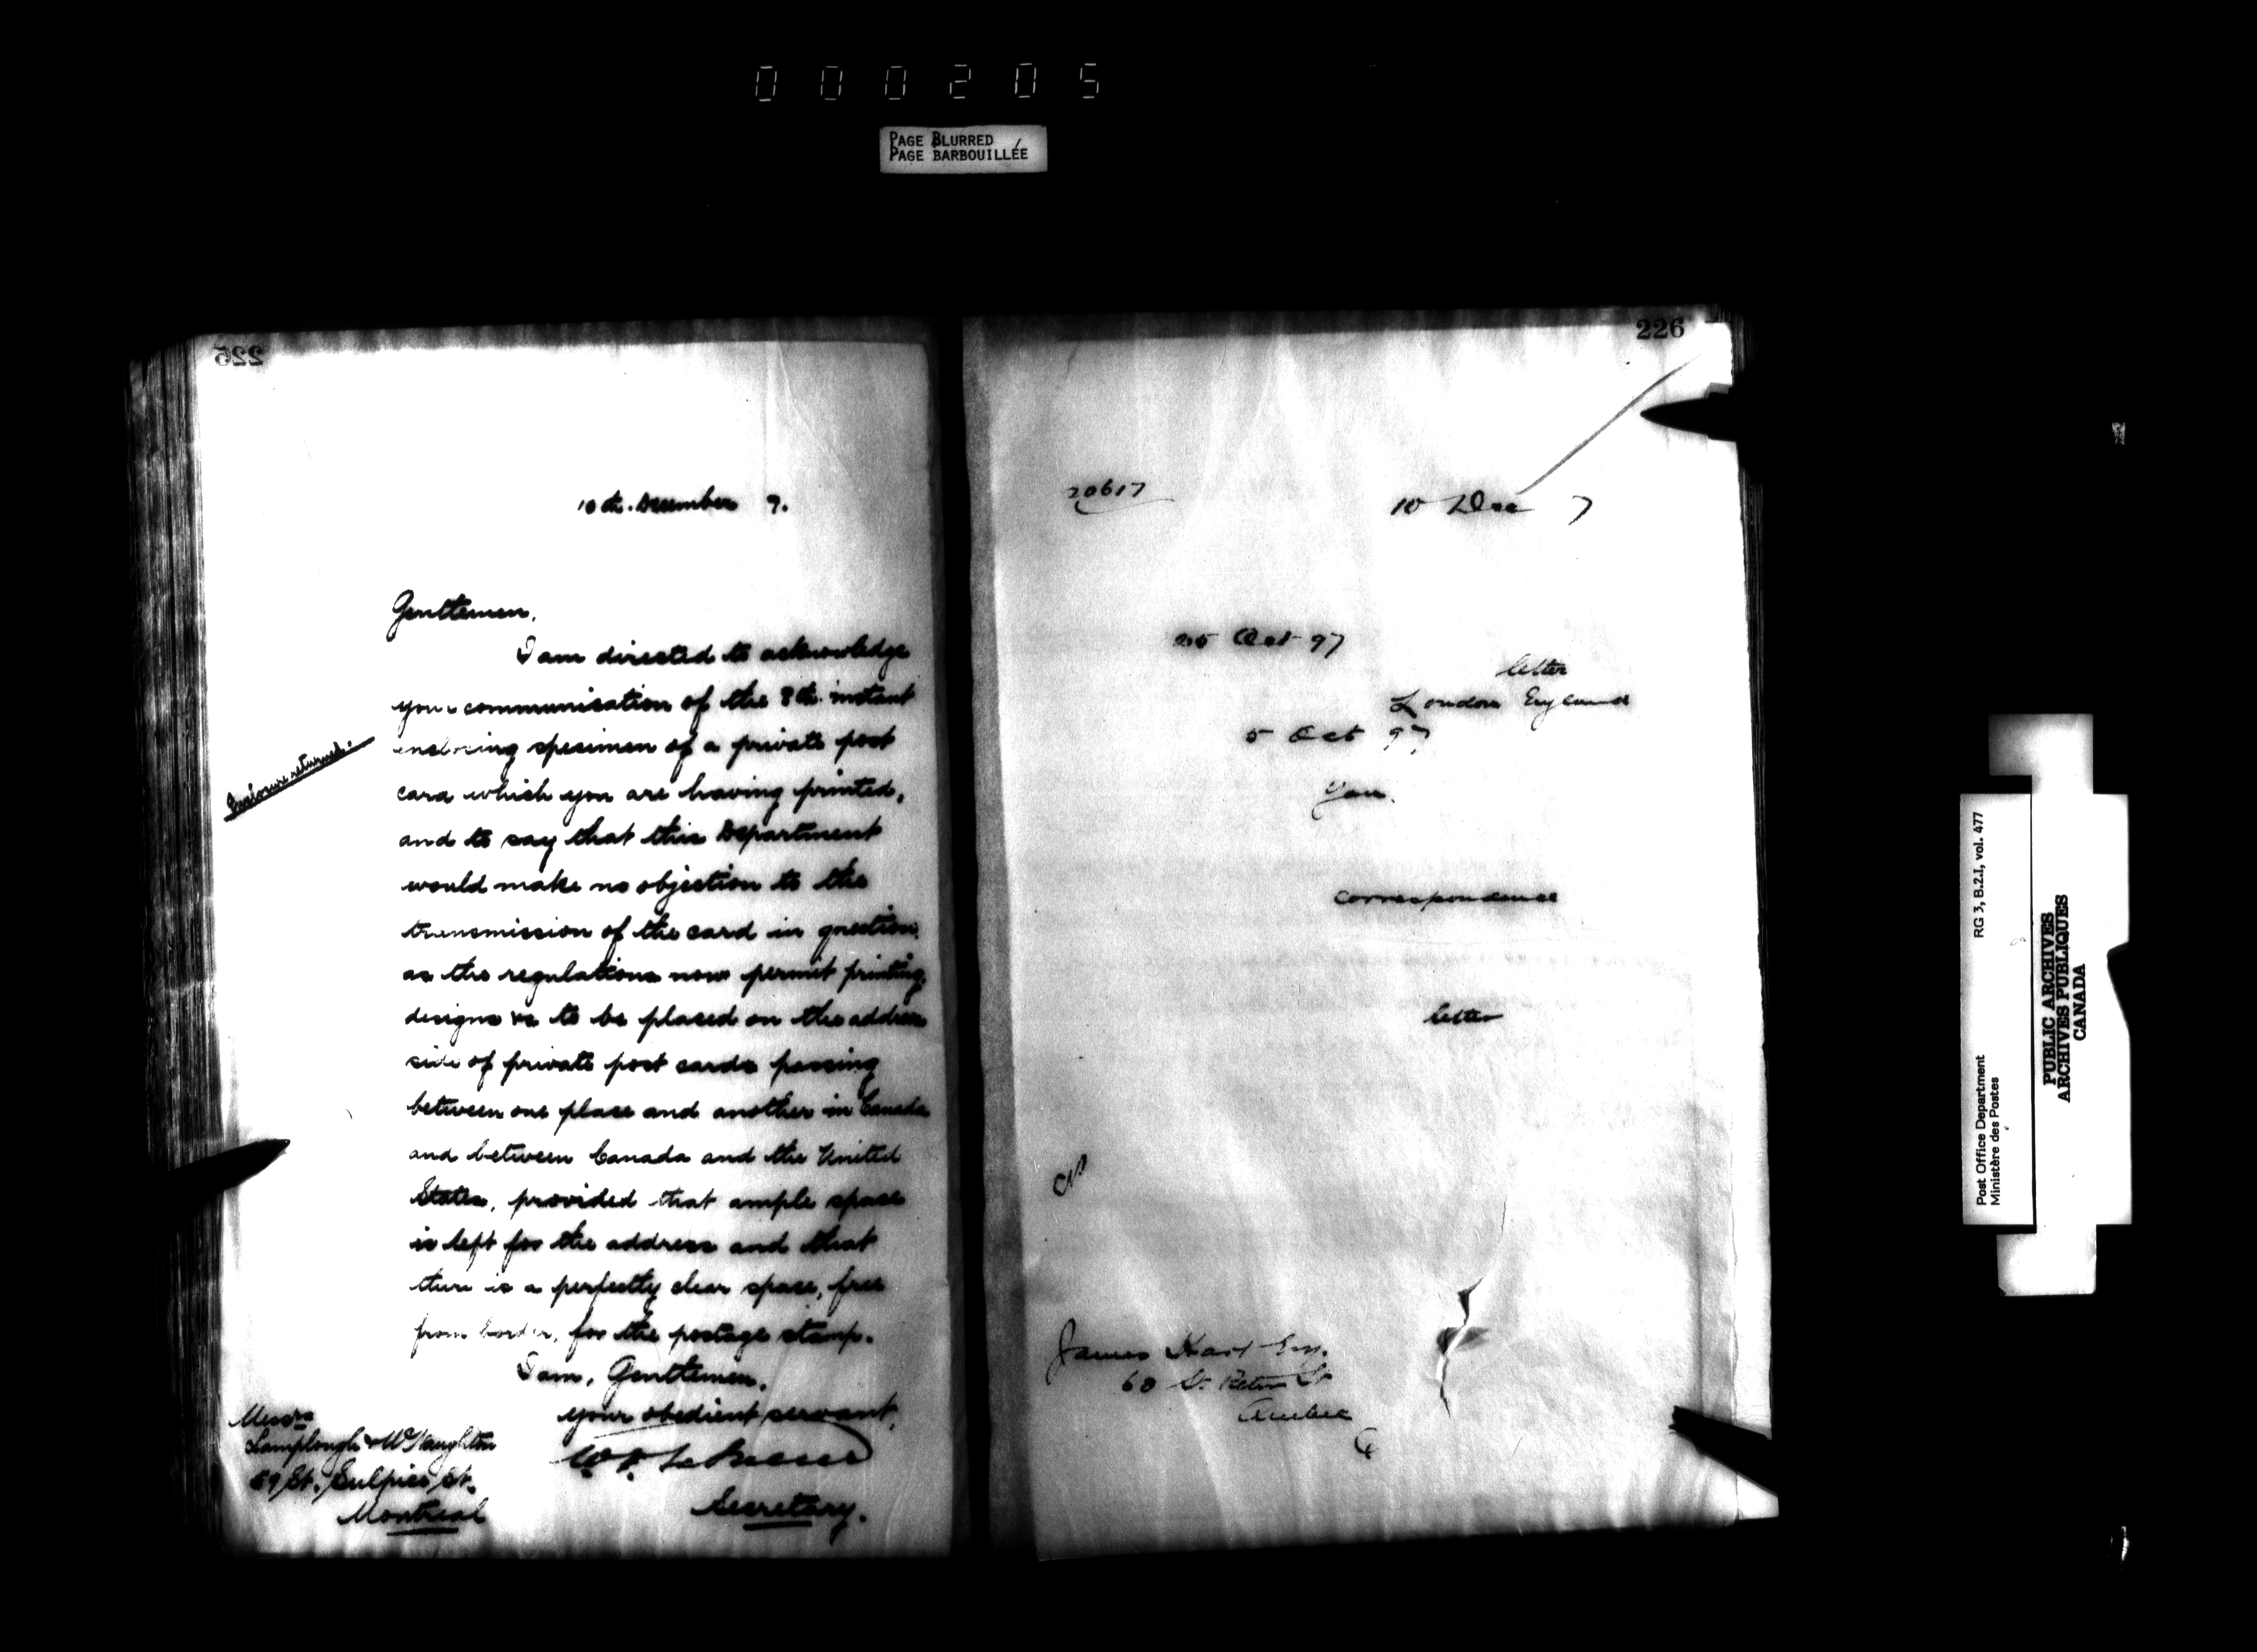 000205
PAGE BLURRED
PAGE BARBOUILLÉE
225
10th. December 7.
Gentlemen,
I am directed to acknowledge
your communication of the 8th. instant
enclosing specimen of a private post
card which you are having printed,
and to say that this Department
would make no objection to the
transmission of the card in question,
as the regulations now permit printing,
designs &c to be placed on the address
side of private post cards passing
between one place and another in Canada
and between Canada and the United
States, provided that ample space
is left for the address and that
there is a perfectly clear space, free
from border, for the postage stamp.
I am, Gentlemen,
your obedient servant,
Secretary.
Enclosure returned.
Messrs
Lamplough & McNaughton
59 St. Sulpice St.
Montreal
226
20617
10 Dec 7
25 Oct 97
letter
London England
5 Oct 97
you.
correspondence
letter
James Esq.
60 St. Peter St
Quebec
Post Office Department RG 3, B.2.I, vol. 477
Ministère des Postes
PUBLIC ARCHIVES
ARCHIVES PUBLIQUES
CANADA